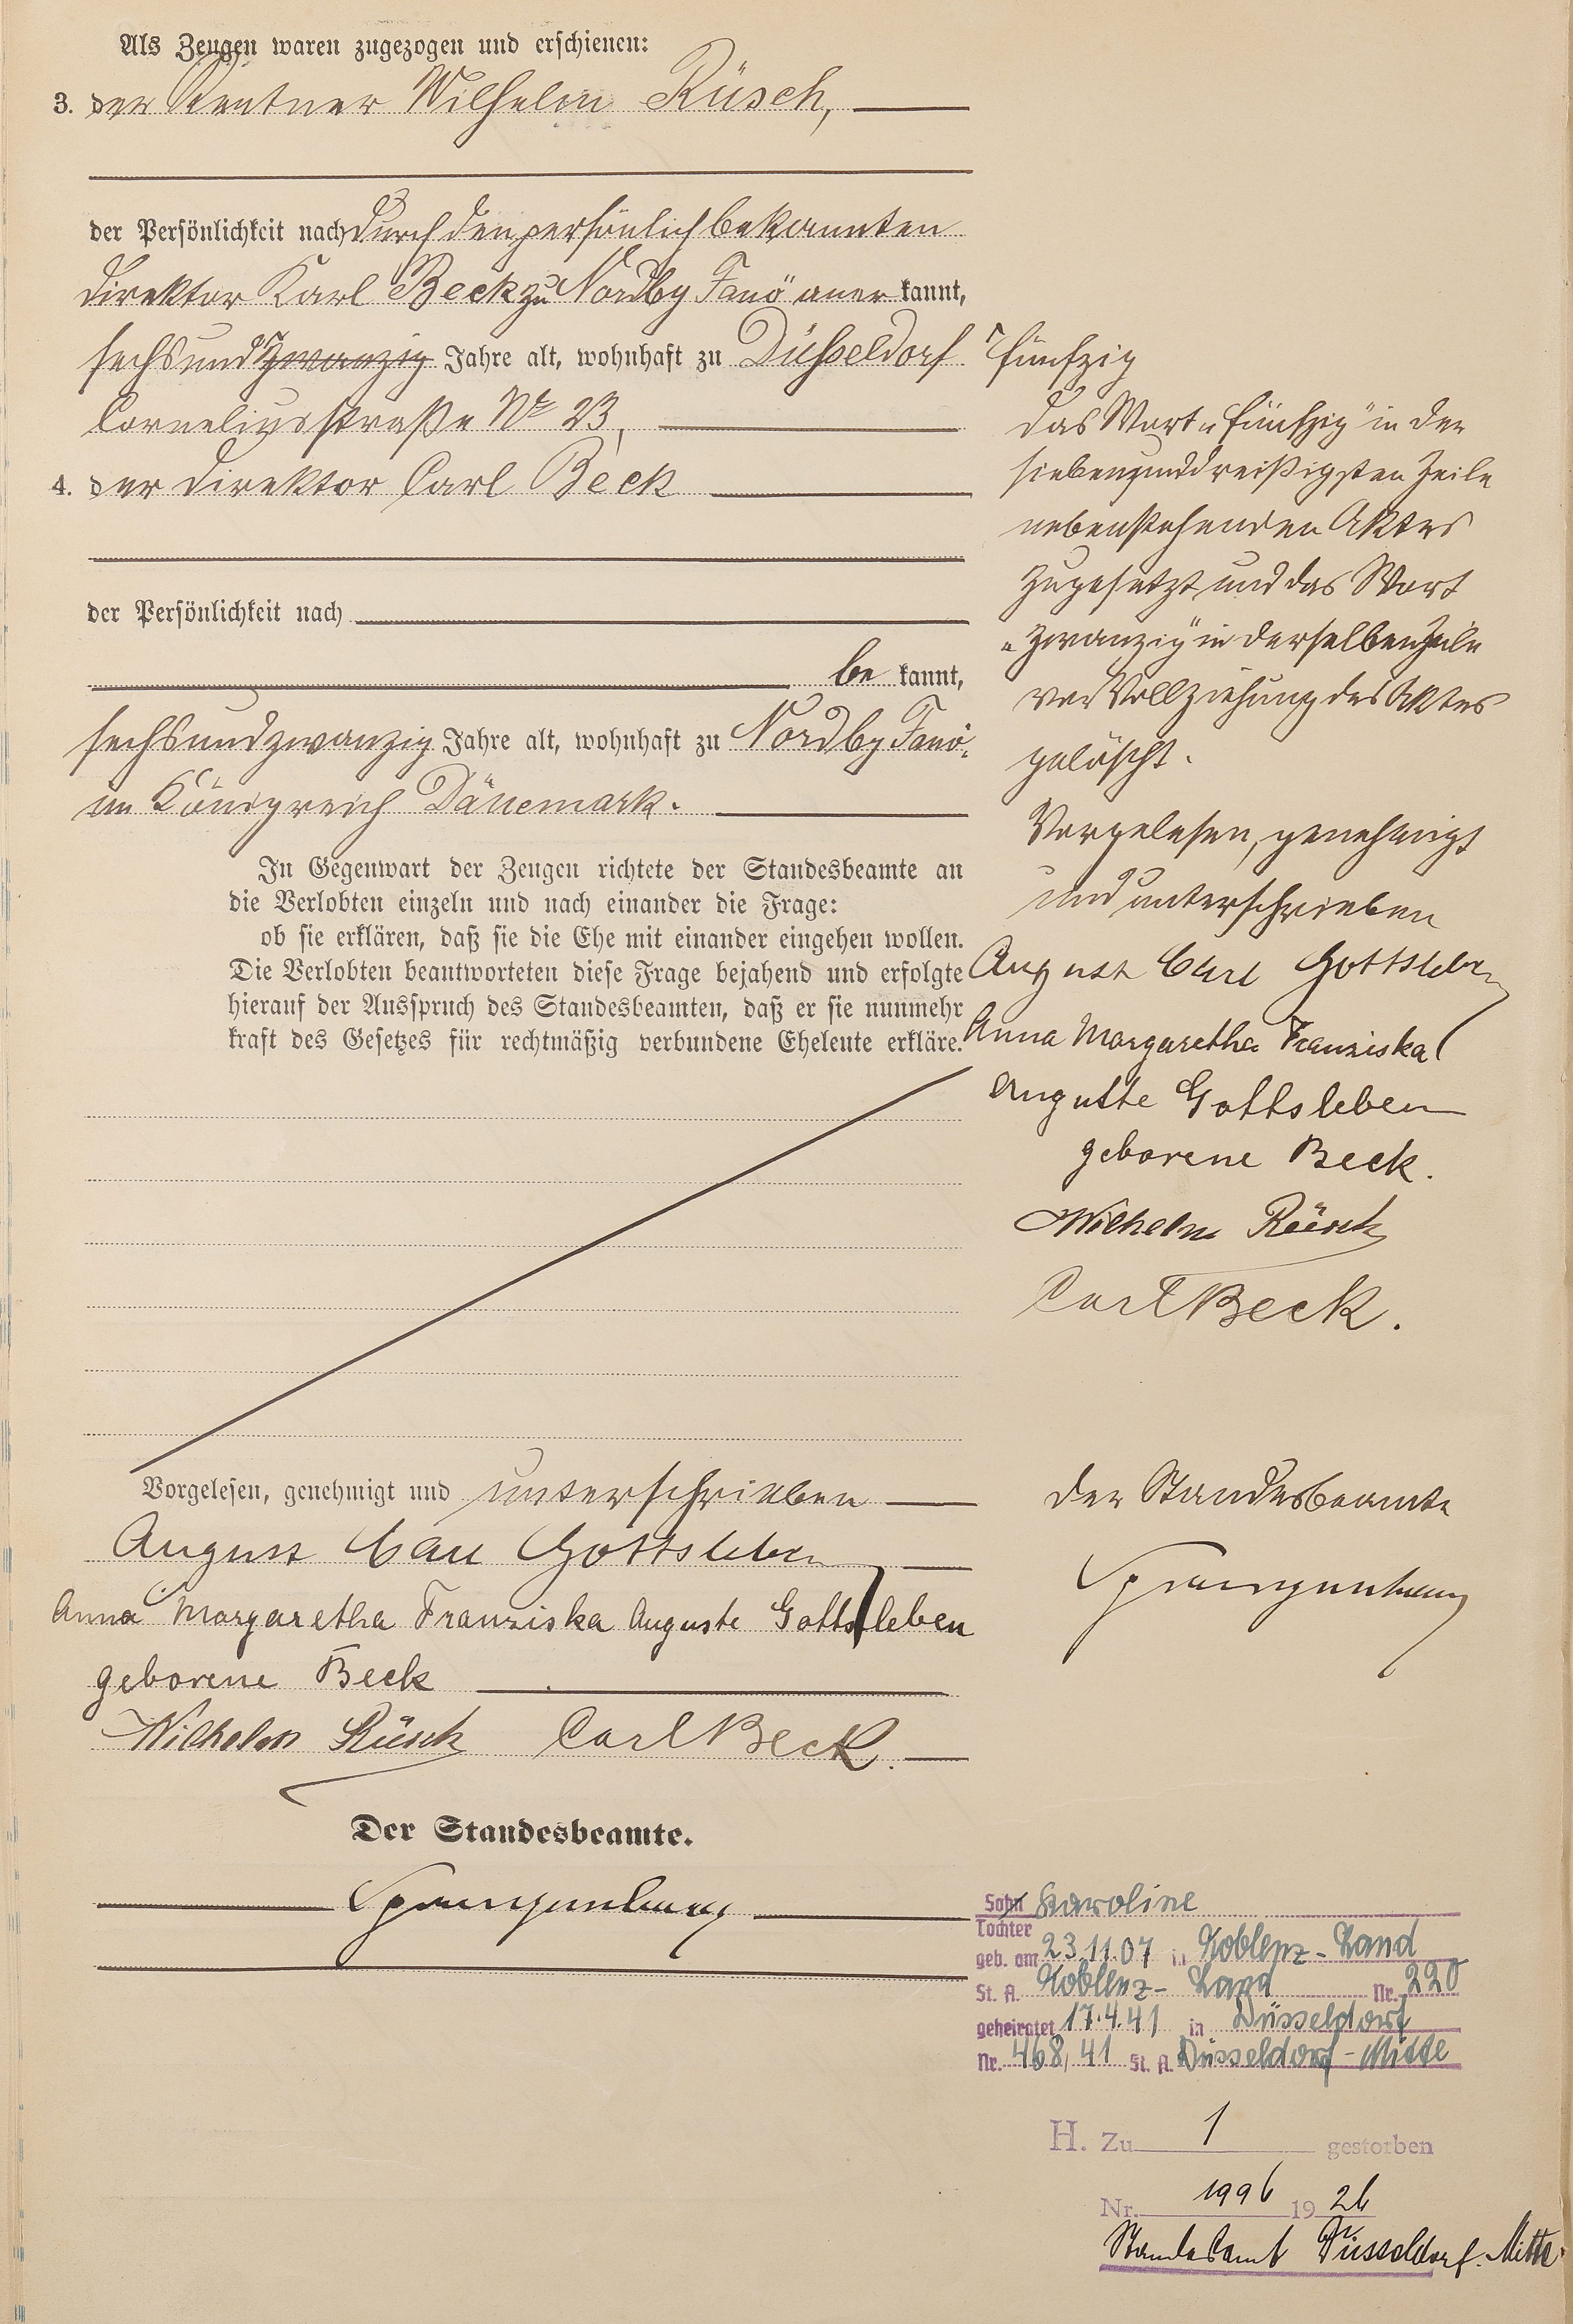 Als Zeugen waren zugezogen und erschienen:
3. der Rentner Wilhelm Rüsch,
der Persönlichkeit nach durch den persönlich bekannten
Direktor Karl Beck zu Nordby Fanö anerkannt,
sechsundzwanzig Jahre alt, wohnhaft zu Düsseldorf
Corneliusstraße No 23,
4. der Direktor Carl Beck
der Persönlichkeit nach
be kannt,
sechsundzwanzig Jahre alt, wohnhaft zu Nordby Fanö,
im Königreich Dänemark.
In Gegenwart der Zeugen richtete der Standesbeamte an
die Verlobten einzeln und nach einander die Frage:
ob sie erklären, daß sie die Ehe mit einander eingehen wollen.
Die Verlobten beantworteten diese Frage bejahend und erfolgte
hierauf der Ausspruch des Standesbeamten, daß er sie nunmehr
kraft des Gesetzes für rechtmäßig verbundene Eheleute erkläre.
Vorgelesen, genehmigt und unterschrieben
August Carl Gottsleben
Anna Margaretha Franziska Auguste Gottsleben
geborene Beck
Wilhelm Rüsch Carl Beck.
Der Standesbeamte.
fünfzig
das Wort "fünfzig" in der
siebenunddreißigsten Zeile
nebenstehenden Aktes
zugesetzt und das Wort
"zwanzig" in derselben Zeile
vor Vollziehung des Aktes
gelöscht.
Vorgelesen, genehmigt
und unterschrieben
August Carl Gottsleben
Anna Margaretha Franziska
Auguste Gottsleben
geborene Beck.
Wilhelm Rüsch
Carl Beck.
Der Standesbeamte
Sohn Karoline
Tochter
geb. am 23.11.07 in Koblenz-Land
St. A. Koblenz-Land Nr. 220
geheiratet 17.4.41 in Düsseldorf
Nr. 468/41 St. A. Düsseldorf-Mitte
H. Zu 1 gestorben
Nr. 1996 1926
Standesamt Düsseldorf-Mitte